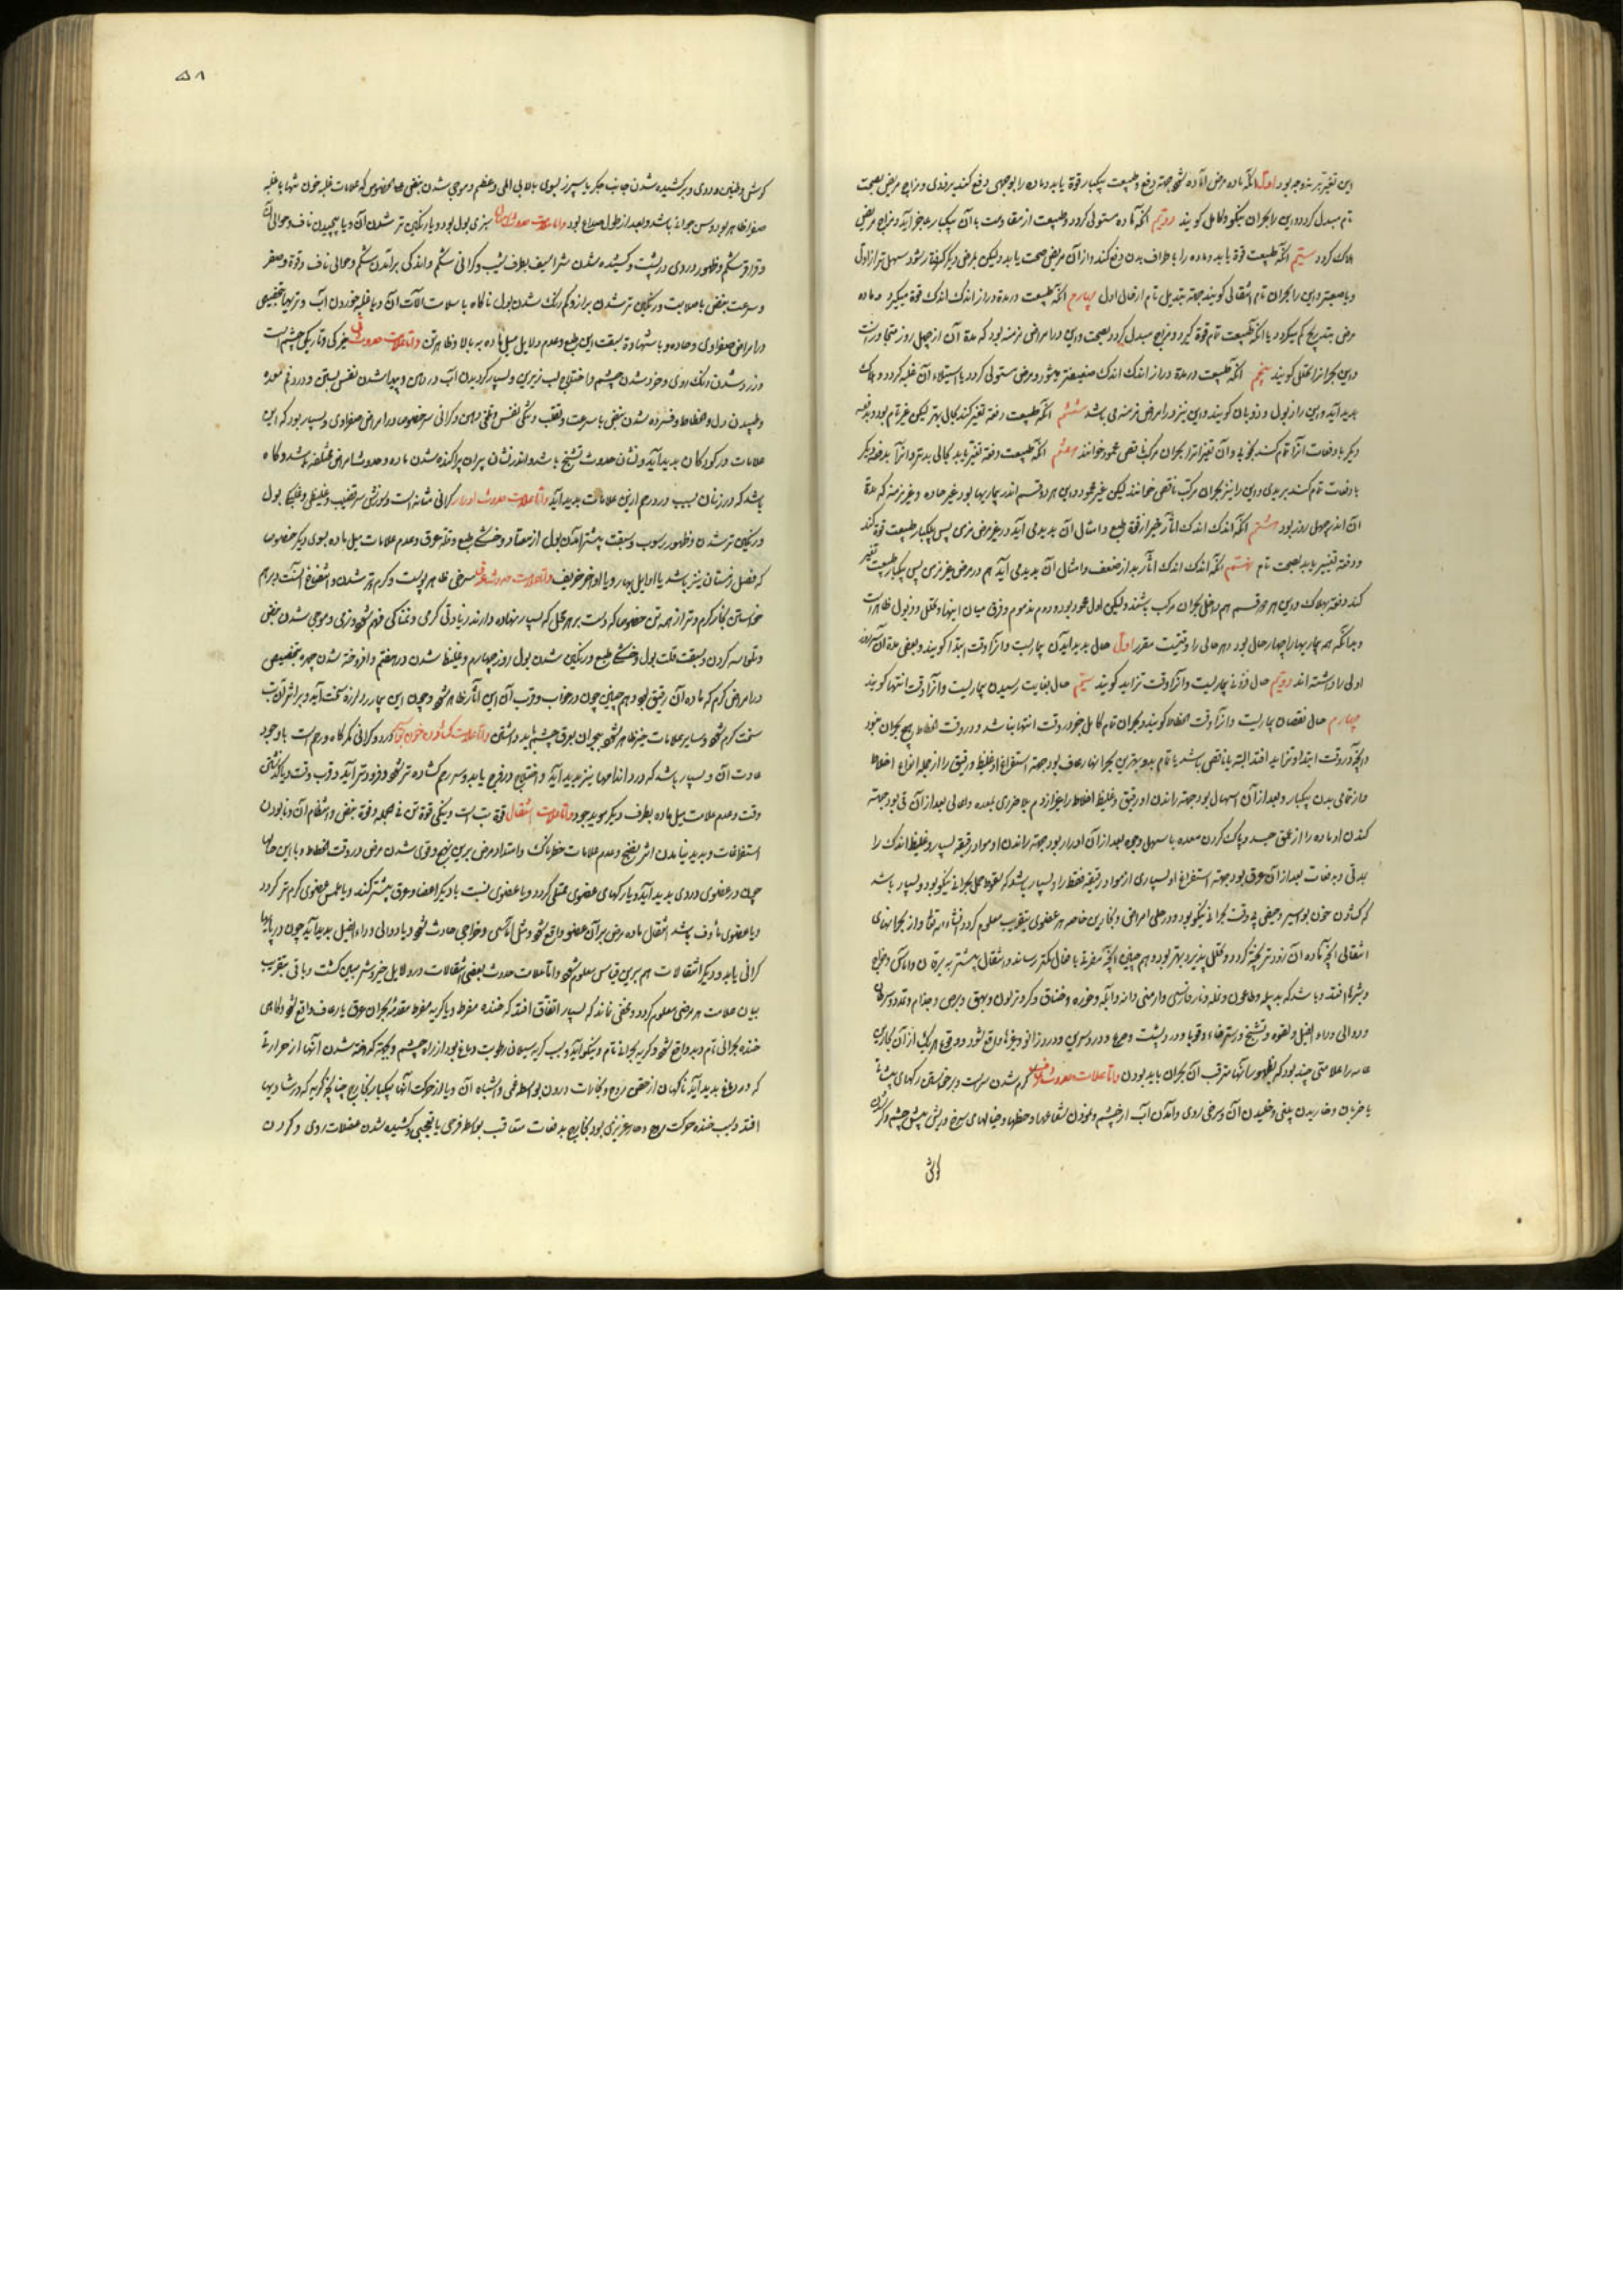 این تغیر بر نه وجه بود اول آنکه ماده مرض آماده شود جهة دفع و طبیعت بیکبار قوة یابد و ماده را بوجهی دفع کند بزودی و مزاج مریض بصحت
تام مبدل کردد و این را بحران نیکو و کامل کویند دویم آنکه ماده مستولی کردد و طبیعت از مقاومت با آن بیکبار بعجز آید و مزاج مریض
هلاک کردد سیم آنکه طبیعت قوة یابد و ماده را باطراف بدن دفع کند و از آن مریض صحت یابد ولیکن بمرض دیکر کرفتار شود سهل تر از اول
و یا صعبتر و این را بحران تام انتقالی کویند جهة تبدیل تام از حال اول چهارم آنکه طبیعت در مدة دراز اندک اندک قوة میکیرد و ماده
مرض بتدریج کم میکردد یا آنکه طبیعت تمام قوة کیرد و مزاج مبدل کردد بصحت و این در امراض مزمنه بود که مدة آن از چهل روز متجاوز است
و این بحرانرا تحلل کویند پنجم آنکه طبیعت در مدة دراز اندک اندک ضعیفتر میشود و مرض مستولی کردد یا استیلاء آن غلبه کردد و هلاک
پدید آید و این را ذبول و ذوبان کویند و این نیز در امراض مزمنه می باشد ششم آنکه طبیعت دفعة تغیر کند بحال بهتر لیکن غیر تام بود و بدفعه
دیکر یا دفعات آنرا تمام کند بخوبی و آن تغیراترا بحران مرکب ناقص محمود خوانند هفتم آنکه طبیعت دفعة تغیر یابد بحالی بدتر و آنرا بدفعه دیکر
یا دفعات تمام کند ببدی و این را نیز بحران مرکب ناقص خوانند لیکن غیر محمود و این هر دو قسم اندر بیماریها بود غیر حاده و غیر مزمنه که مدة
آن اندر چهل روز بود هشتم آنکه اندک اندک آثار خیر از قوة طبع و امثال آن پدید می آید در غیر مرض مزمن پس بیکبار طبیعت قوة کند
و دفعة تغییر یابد بصحت تام نهم آنکه اندک اندک آثار بد از ضعف و امثال آن پدید می آید هم در مرض غیر مزمن پس بیکبار طبیعت تغیر
کند دفعة بهلاک و این هر دو قسم هم داخل بحران مرکب باشند ولیکن اول محمود بود و دوم مذموم و فرق میان اینها و تحلل و ذبول ظاهر است
و بدانکه همه بیماریها را چهار حال بود و هر حالی را وقتیست مقرر اول حال پدید آمدن بیماریست و آنرا وقت ابتدا کویند و بعضی مدة آن سه روز
اولی را داشته اند دویم حال فزونی بیماریست و آنرا وقت تزاید کویند سیم حال بغایت رسیدن بیماریست و آنرا وقت انتها کویند
چهارم حال نقصان بیماریست و آنرا وقت انحطاط کویند و بحران تام کامل جز در وقت انتها نباشد و در وقت انحطاط هیچ بحران نبود
و آنچه در وقت ابتدا و تزاید افتد البته یا ناقص باشد یا تمام بد و بهترین بحرانها رعاف بود جهة استفراغ او غلیظ و رقیق را از جمله انواع اخلاط
و از تمامی بدن بیکبار و بعد از آن اسهال بود جهة راندن او رقیق و غلیظ اخلاط را غیر از دم بلا ضرری بمعده و اعالی بعد از آن قی بود جهة
کندن او ماده را از عمق جسد و پاک کردن معده باسهل وجهی بعد از آن ادرار بود جهة راندن او مواد رقیقه بسیار و غلیظ اندک را
بمدتی و بدفعات بعد از آن عرق بود جهة استفراغ او بسیاری از مواد رقیقه فقط را و بسیار باشد که سقوط محل بحرانی نیکو بود و بسیار باشد
که کشودن خون بواسیر و حیض بوقت بحران نیکو بود و در محلی امراض و بحارین خاصه هر عضوی بتقریب معلوم کردد انشاءالله تعالی و از بحرانهای
انتقالی آنچه ماده آن زودتر پخته کردد و تحلل پذیرد بهتر بود و هم چنین آنچه مضرة با فعال کمتر رساند و انتقال بیشتر به یرقان و آماس و خراج
و بثرها افتد و باشد که به پیله و طاعون و نمله و نار فارسی و ارمنی دانه و آبله و خوره و خناق و کر و تر لون و بهق و برص و جذام و غدد و سرطان
و دوالی و داء الفیل و لقوه و تشنج و استرخاء و قوبا و درد پشت و صرع و درد سرین و درد زانو و غیرها واقع شود و وقوع هر یک از آن بحارین
عامه را علامتی چند بود که بظهور آنها مترقب آن بحران باید بودن و اما علامات حدوث رعاف کرم شدن سر است و برخاستن رکهای پیشانی
با ضربان و خاریدن بینی و خلیدن آن و سرخی روی و آمدن آب از چشم و نمودن شعاعها و خطها و خیالهای سرخ در پیش چشم و کر شدن
کوش
۵۸
کوش و طنین و دوی و برکشیده شدن جانب جکر یا سپرز بسوی بالا بی المی و عظیم و موجی شدن نبض خصوص که علامات غلبه خون تنها یا غلبه
صفرا ظاهر بود و سن جوان باشد و بعد از طول صداع بود و اما علامات حدوث اسهال سبزی بول بود و یا رنکین تر شدن آن و یا پیچیدن ناف و حوالی آن
و قراقر شکم و ظهور دردی در پشت و کشیده شدن شراسیف بطرف شیب و کرانی شکم و اندکی برآمدن شکم و حوالی ناف و قوة و صغر
و سرعت نبض با صلابت و رنکین تر شدن براز و کم رنک شدن بول ناکاه با سلامت آلات آن و یا غلبه خوردن آب و تریها بتخصیص
در امراض صفراوی و حاده و یا شهادة سبقت لین طبع و عدم دلایل میل ماده به بالا و ظاهر تن و اما علامات حدوث قی خیرکی و تاریکی چشم است
و زرد شدن رنک روی و خرد شدن چشم و اختلاج لب زیرین و بسیار کردیدن آب در دهن و پیدا شدن نفس پستی و درد فم معده
و طپیدن دل و انحطاط و فسرده شدن نبض با سرعت و تقلب و تنکی نفس و تلخی دهن و کرانی سر خصوصا در امراض صفراوی و بسیار بود که این
علامات در کودکان پدید آید و نشان حدوث تشنج باشد و اندر نشان پیران پراکنده شدن ماده و حدوث امراض مختلفه باشد و کاه
باشد که در زنان بسبب درد رحم از این علامات پدید آید و اما علامات حدوث ادرار کرانی مثانه است و سوزش سر قضیب و غلیظی و غلبکی بول
و رنکین تر شدن و ظهور رسوب و سبقت بیشتر آمدن بول از معتاد و خشکی طبع و قلة عرق و عدم علامات میل ماده بسوی دیکر خصوصا
که فصل زمستان نیز باشد یا اوایل بهار و یا اواخر خریف و اما علامات حدوث عرق سرخی ظاهر پوست و کرم تر شدن و انتفاخ آنست و برهم
خواستن بخار کرم و تر از همه تن خصوصا که دست بر هر محل که بسیار نهاده دارند زیادتی کرمی و نمناکی فهم شود و نرمی و موجی شدن نبض
و تلواسه کردن و سبقت قلت بول و خشکی طبع و رنکین شدن بول روز چهارم و غلیظ شدن در هفتم و افروخته شدن چهره بتخصیص
در امراض کرم که ماده آن رقیق بود و هم چنین چون در خواب و قرب آن این آثار ظاهر شود و چون این بیمار را لرزه سخت آید و بر اثر آن تب
سخت کرم شود و سایر علامات نیز ظاهر شود بحران بعرق چشم باید داشتن و اما علامات کشودن خون بحرانی درد و کرانی کمرکاه و رحم است با وجود
عادت آن و بسیار باشد که درد اندامها نیز پدید آید و اختلاج در فرج یابد و سر رحم کشاده تر شود و فرودتر آید و قرب وقت و یا کذشتن
وقت و عدم علامت میل ماده بطرف دیکر موید بود و اما علامات انتقال قوة تب است و نیکی قوة تن فی الجمله و قوة نبض و انتظام آن و نابودن
استفراغات و پدید نیامدن اثر نضج و عدم علامات خطرناک و امتداد مرض برین نهج و قوی شدن مرض در وقت انحطاط و با این حال
چون در عضوی دردی پدید آید و یا رکهای عضوی ممتلی کردد و یا عضوی نسبت با دیکر اعضا و عرق بیشتر کند و یا بلمس عضوی کرم تر کردد
و یا عضوی ماوف باشد انتقال ماده مرض بر آن عضو واقع شود و مثل آماسی و خراجی حادث شود و یا دوالی و داء الفیل پدید آید چون در پایها
کرانی یابد و دیکر انتقالات هم برین قیاس معلوم شود و اما علامات حدوث بعضی انتقالات در دلایل خیر و شر مبین کشت و باقی بتقریب
بیان علامت هر مرضی معلوم کردد و مخفی نماند که بسیار اتفاق افتد که خنده مفرط و یا کریه مفرط مقدمه بحران عرق یا رعاف واقع شود و کاهی
خنده بحرانی تام و بد واقع شود و کریه بحرانی تام و نیکو آید و سبب کریه سیلان رطوبت دماغ بود از راه چشم و بجهة کداخته شدن آنها از حرارتی
که در دماغ پدید آید ناکهان از خفن روح و بخارات درون بواسطه غمی و اشباه آن و یا از حرکت آنها بیکبار بخارج چنانچه کریه که در شادیها
افتد و سبب خنده حرکت روح و حار غریزی بود بخارج بدفعات متعاقب بواسطه فرحی یا تعجبی و کشیده شدن عضلات روی و کردن